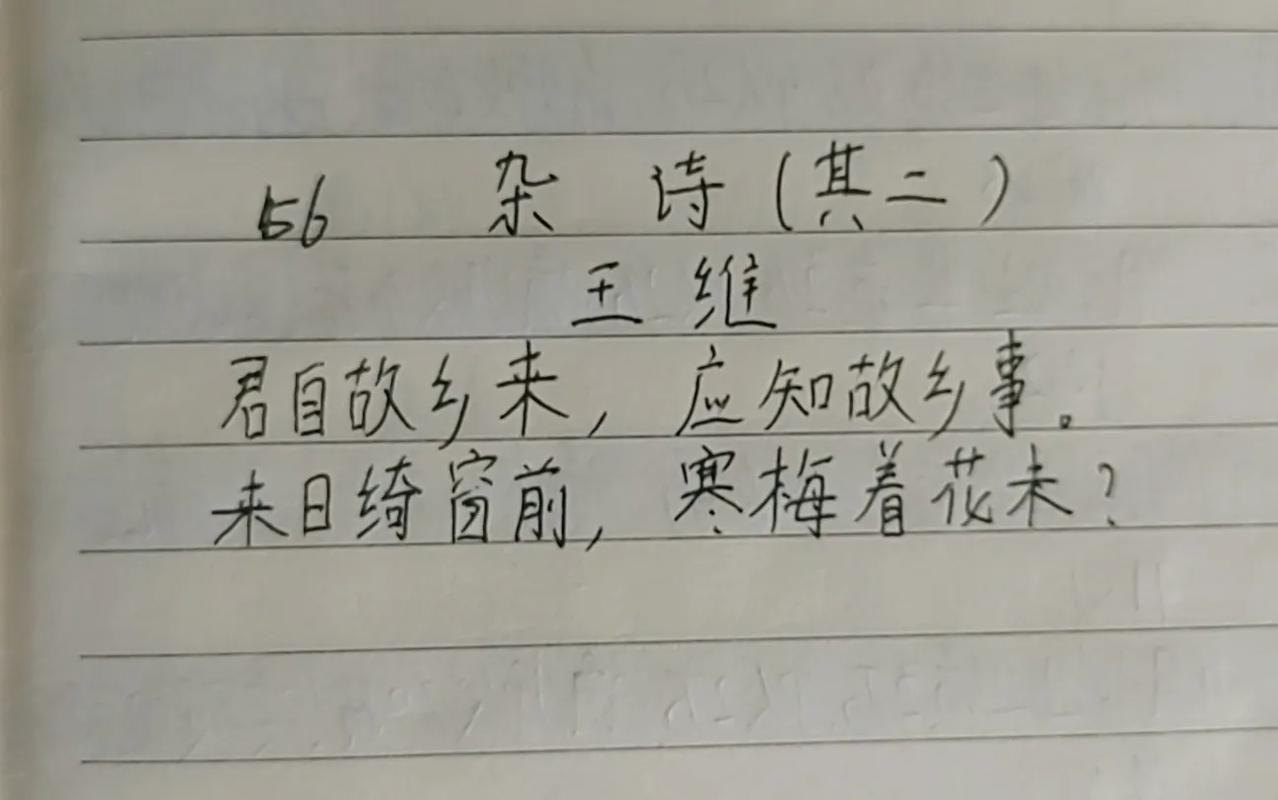 56 杂诗(其二)
王维
君自故乡来,应知故乡事。
来日绮窗前,寒梅着花未?